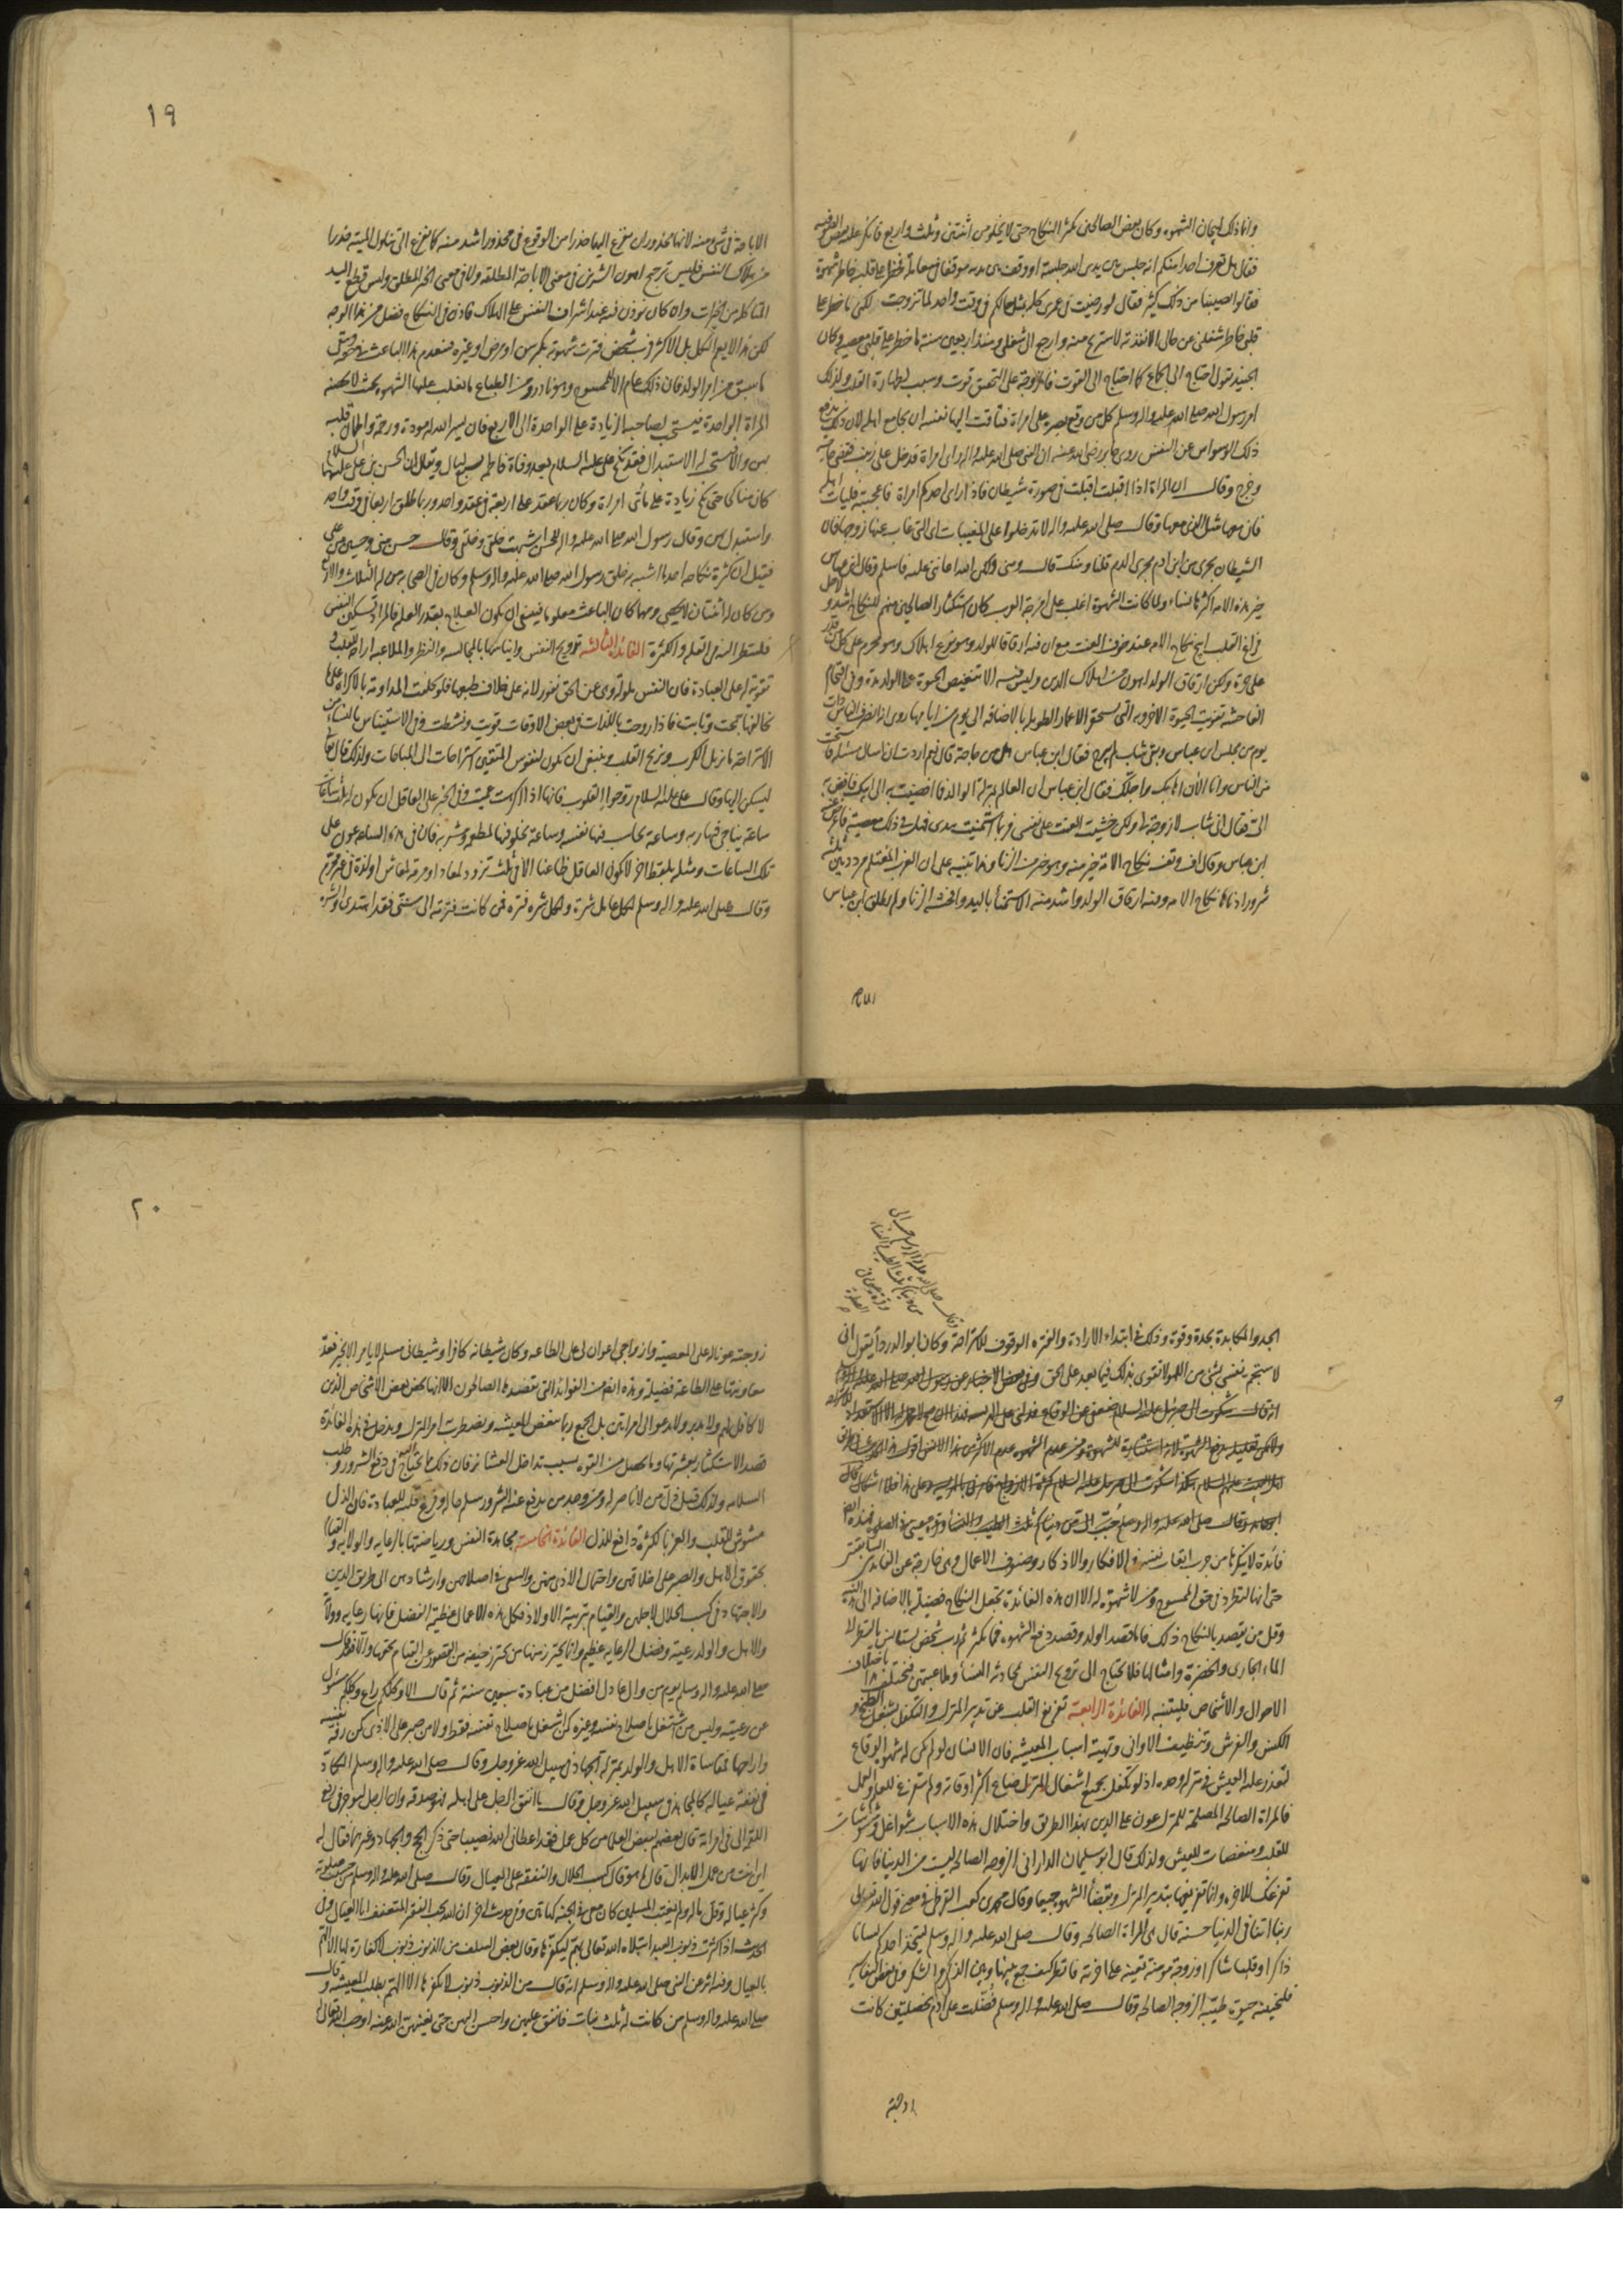 وانما ذلك لهيجان الشهوة وكان بعض الصالحين يكثر النكاح حتى لا يخلو من اثنتين وثلث واربع فانكر عليه بعض الصوفية
فقال هل تعرف احد منكم انه جلس بين يدي الله جلسة او وقف بين يديه موقفا في معاملة فخطر على قلبه خاطر شهوة
فقالوا يصيبنا من ذلك كثير فقال لو رضيت في عمري كله بمثل حالكم في وقت واحد لما تزوجت لكني ما خطر على
قلبي خاطر شغلني عن حالي الا نفذته لاستريح منه وارجع الى شغلي ومنذ اربعين سنة ما خطر على قلبي معصية وكان
الجنيد يقول احتاج الى الجماع كما احتاج الى القوت فالزوجة على التحقيق قوت وسبب لطهارة القلب ولذلك
امر رسول الله صلى الله عليه واله وسلم كل من وقع بصره على امراة فتاقت اليها نفسه ان يجامع اهله لان ذلك يدفع
ذلك الوسواس عن النفس روى جابر رضي الله عنه ان النبي صلى الله عليه واله راى امراة فدخل على زينب فقضى حاجته
وخرج وقال ان المراة اذا اقبلت اقبلت في صورة شيطان فاذا راى احدكم امراة فاعجبته فليات اهله
فان معها مثل الذي معها وقال صلى الله عليه واله لا تدخلوا على المغيبات اي التي غاب عنها زوجها فان
الشيطان يجري من ابن ادم مجرى الدم قلنا ومنك قال ومني ولكن الله اعانني عليه فاسلم وقال ابن عباس
خير هذه الامة اكثرها نساء ولما كانت الشهوة اغلب على امزجة العرب كان استكثار الصالحين منهم للنكاح اشد ولاجل
فراغ القلب ابيح نكاح الامة عند خوف العنت مع ان فيه ارقاقا للولد وهو نوع اهلاك وهو محرم على كل من قدر
على حرة ولكن ارقاق الولد اهون من اهلاك الدين وليس فيه الا تنغيص الحيوة على الولد مدة وفي اقتحام
الفاحشة تفويت الحيوة الاخروية التي يستحقر الاعمار الطويلة بالاضافة الى يوم من ايامها روي انه انصرف الناس ذات
يوم من مجلس ابن عباس وبقي شاب لم يبرح فقال ابن عباس هل من حاجة قال نعم اردت ان اسال مسئلة فاستحييت
من الناس وانا الآن اهابك واجلك فقال ابن عباس ان العالم بمنزلة الوالد فما افضيت به الى ابيك فافض به
الي فقال اني شاب لا زوجة لي ولكن خشيت العنت على نفسي فربما استمنيت بيدي فهل في ذلك معصية فاعرض عنه
ابن عباس وقال اف وتف نكاح الامة خير منه وهو خير من الزنا وهذا تنبيه على ان العزب المغتلم مردد بين ثلثة
شرور ادناها نكاح الامة وفيه ارقاق الولد واشد منه الاستمناء باليد وافحشه الزنا ولم يطلق ابن عباس
الاباحة
١٩
الاباحة في شئ منه لانها محذوران يفزع اليها حذرا من الوقوع في محذور اشد منه كما يفزع الى تناول الميتة حذرا
من هلاك النفس فليس ترجيح اهون الشرين في معنى الاباحة المطلقة ولا في معنى الخير المطلق وليس قطع اليد
المتاكلة من الخيرات وان كان يؤذن فيه عند اشراف النفس على الهلاك فاذن في النكاح فضل من هذا الوجه
لكن هذا لا يعم الكل بل الاكثر فرب شخص فترت شهوته بكبر سن او مرض او غيره فينعدم هذا الباعث في حقه ويبقى
ما سبق من امر الولد فان ذلك عام الا للممسوح وهو نادر ومن الطباع ما يغلب عليها الشهوة بحيث لا يحصنه
المراة الواحدة فيستحب لصاحبها الزيادة على الواحدة الى الاربع فان يسر الله له مودة ورحمة واطمأن قلبه
بهن والا فيستحب له الاستبدال فقد نكح علي عليه السلام بعد وفاة فاطمة بسبع ليال ويقال ان الحسن بن علي عليهما السلام
كان منكاحا حتى نكح زيادة على مأتي امراة وكان ربما عقد على اربعة في عقد واحد وربما طلق اربعا في وقت واحد
واستبدل بهن وقال رسول الله صلى الله عليه واله للحسن اشبهت خلقي وخلقي وقال حسن مني وحسين من علي
فقيل ان كثرة نكاحه احد ما اشبه به خلق رسول الله صلى الله عليه واله وسلم وكان في الصحابة من له الثلاث والاربع
ومن كان له اثنتان لا يحصى ومهما كان الباعث معلوما فينبغي ان يكون العلاج بقدر العلة فالمراد تسكين النفس
فلينظر اليه في القلة والكثرة الفائدة الثالثة ترويح النفس وايناسها بالمجالسة والنظر والملاعبة اراحة للقلب و
تقوية له على العبادة فان النفس ملولة وهي عن الحق نفور لانه على خلاف طبعها فلو كلفت المداومة بالاكراه على
ما يخالفها جمحت وتابت فاذا روحت باللذات في بعض الاوقات قويت ونشطت وفي الاستيناس بالنساء من
الاستراحة ما يزيل الكرب ويريح القلب وينبغي ان يكون لنفوس المتقين استراحات الى المباحات ولذلك قال تعالى
ليسكن اليها وقال علي عليه السلام روحوا القلوب فانها اذا اكرهت عميت وفي الخبر على العاقل ان يكون له ثلث ساعات
ساعة يناجي فيها ربه وساعة يحاسب فيها نفسه وساعة يخلو فيها لمطعمه ومشربه فان في هذه الساعة عون على
تلك الساعات ومثله بلفظ اخر لا يكون العاقل ظاعنا الا في ثلث تزود لمعاد او مرمة لمعاش او لذة في غير محرم
وقال صلى الله عليه واله وسلم لكل عامل شرة ولكل شرة فترة فمن كانت فترته الى سنتي فقد اهتدى والشرة
الجد والمكابدة بحدة وقوة وذلك في ابتداء الارادة والفترة الوقوف للاستراحة وكان ابو الدرداء يقول اني
لاستجم نفسي بشئ من اللهو لاتقوى بذلك فيما بعد على الحق وفي بعض الاخبار عن رسول الله صلى الله عليه واله
انه قال شكوت الى جبرئيل عليه السلام ضعفي عن الوقاع فدلني على الهريسة فهذا ان صح لا محمل له الا الاستعداد للاستراحة
حتى انها لتطرد في حق الممسوح ومن لا شهوة له الا ان هذه الفائدة تجعل النكاح فضيلة بالاضافة الى هذه النية
وقل من يقصد بالنكاح ذلك فاما قصد الولد وقصد دفع الشهوة فمما يكثر ثم رب شخص يستانس بالنظر الى
الماء الجاري والخضرة وامثالها فلا يحتاج الى ترويح النفس بمحادثة النساء وملاعبتهن فيختلف هذا باختلاف
الاحوال والاشخاص فليتنبه له الفائدة الرابعة تفريغ القلب عن تدبير المنزل والتكفل بشغل الطبخ و
الكنس والفرش وتنظيف الاواني وتهيئة اسباب المعيشة فان الانسان لو لم يكن له شهوة الوقاع
لتعذر عليه العيش في منزله وحده اذ لو تكفل بجميع اشغال المنزل لضاع اكثر اوقاته ولم يتفرغ للعلم والعمل
فالمراة الصالحة المصلحة للمنزل عون على الدين بهذا الطريق واختلال هذه الاسباب شواغل ومشوشات
للقلب ومنغصات للعيش ولذلك قال ابو سليمان الداراني الزوجة الصالحة ليست من الدنيا فانها
تفرغك للاخرة وانما تفريغها بتدبير المنزل وبقضاء الشهوة جميعا وقال محمد بن كعب القرظي في معنى قوله تعالى
ربنا اتنا في الدنيا حسنة قال هي المراة الصالحة وقال صلى الله عليه واله وسلم ليتخذ احدكم لسانا
ذاكرا وقلبا شاكرا وزوجة مؤمنة تعينه على اخرته فانظر كيف جمع بينها وبين الذكر والشكر وفي بعض التفاسير
فلنحيينه حيوة طيبة الزوجة الصالحة وقال صلى الله عليه واله وسلم فضلت على ادم بخصلتين كانت
زوجته
٢٠
زوجته عونا له على المعصية وازواجي اعوان لي على الطاعة وكان شيطانه كافرا وشيطاني مسلم لا يامر الا بخير فعد
معاونتها على الطاعة فضيلة وهذه ايضا من الفوائد التي يقصدها الصالحون الا انها تخص بعض الاشخاص الذين
لا كافل لهم ولا مدبر ولا يدعو الى امراتين بل الجمع ربما ينغص المعيشة ويضطرب امر المنزل ويدخل في هذه الفائدة
قصد الاستكثار بعشيرتها وما يحصل من القوة بسبب تداخل العشائر فان ذلك مما يحتاج اليه في دفع الشرور وطلب
السلامة ولذلك قيل ذل من لا ناصر له ومن وجد من يدفع عنه الشرور سلم حاله وفرغ قلبه للعبادة فان الذل
مشوش للقلب والعز بالكثرة دافع للذل الفائدة الخامسة مجاهدة النفس ورياضتها بالرعاية والولاية والقيام
بحقوق الاهل والصبر على اخلاقهن واحتمال الاذى منهن والسعي في اصلاحهن وارشادهن الى طريق الدين
والاجتهاد في كسب الحلال لاجلهن والقيام بتربية الاولاد فكل هذه الاعمال عظيمة الفضل فانها رعاية وولاية
والاهل والولد رعية وفضل الرعاية عظيم وانما يحترز منها من يحترز خيفة من القصور عن القيام بحقها والا فقد قال
صلى الله عليه واله وسلم يوم من وال عادل افضل من عبادة سبعين سنة ثم قال الا وكلكم راع وكلكم مسئول
عن رعيته وليس من اشتغل باصلاح نفسه وغيره كمن اشتغل باصلاح نفسه فقط ولا من صبر على الاذى كمن رفه نفسه
واراحها فمقاساة الاهل والولد بمنزلة الجهاد في سبيل الله عز وجل وقال صلى الله عليه واله وسلم الكاد
في نفقة عياله كالمجاهد في سبيل الله عز وجل وقال ما انفق الرجل على اهله فهو صدقة وان الرجل ليوجر في رفع
اللقمة الى في امراته وقال بعضهم لبعض العلماء من كل عمل فقد اعطاني الله نصيبا حتى ذكر الحج والجهاد وغيرهما فقال له
اين انت من عمل الابدال قال ما هو قال كسب الحلال والنفقة على العيال وقال صلى الله عليه واله وسلم من حسنت صلوته
وكثر عياله وقل ماله ولم يغتب المسلمين كان معي في الجنة كهاتين وفي حديث اخر ان الله يحب الفقير المتعفف ابا العيال وفي
الحديث اذا كثرت ذنوب العبد ابتلاه الله تعالى بهم ليكفرها وقال بعض السلف من الذنوب ذنوب لا كفارة لها الا الهم
بالعيال وفيه اثر عن النبي صلى الله عليه واله وسلم انه قال من الذنوب ذنوب لا يكفرها الا الهم بطلب المعيشة وقال
صلى الله عليه واله وسلم من كانت له ثلث بنات فانفق عليهن واحسن اليهن حتى يغنيهن الله عنه اوجب الله تعالى له